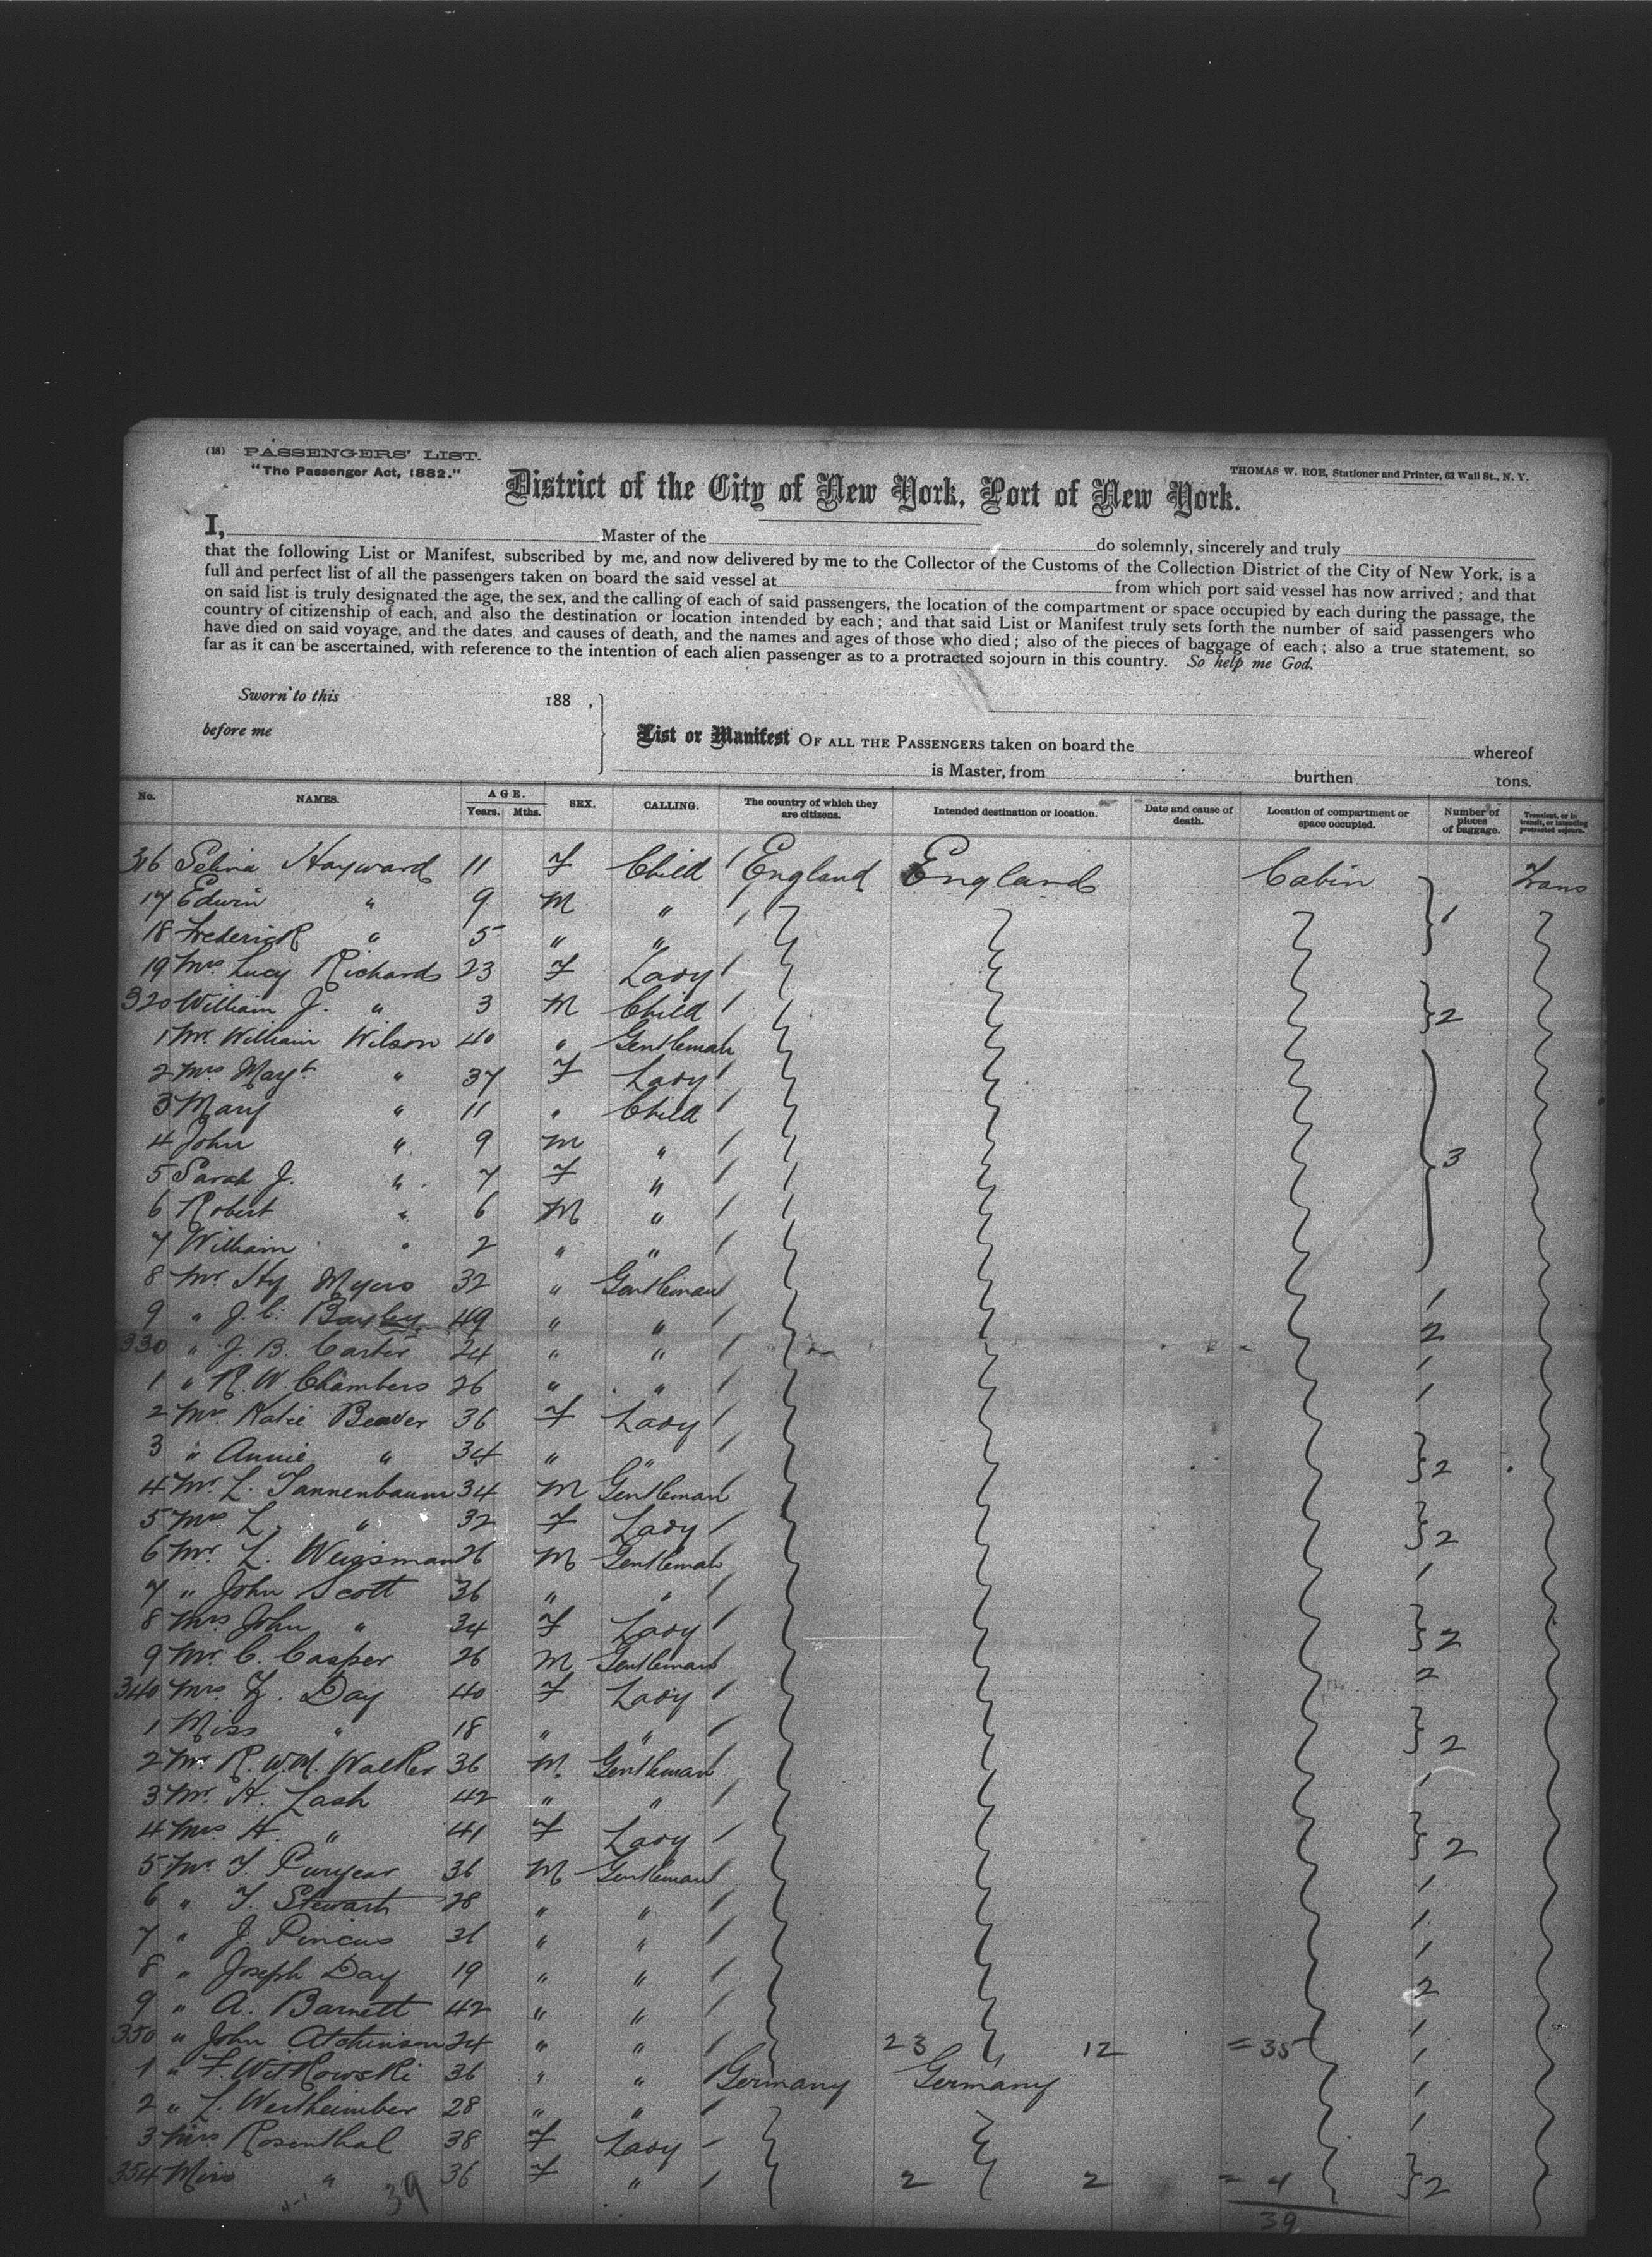 (18) PASSENGERS' LIST.
"The Passenger Act, 1882."
THOMAS W. ROE, Stationer and Printer, 63 Wall St., N. Y.
District of the City of New York, Port of New York.
I, Master of the do solemnly, sincerely and truly
that the following List or Manifest, subscribed by me, and now delivered by me to the Collector of the Customs of the Collection District of the City of New York, is a
full and perfect list of all the passengers taken on board the said vessel at from which port said vessel has now arrived; and that
on said list is truly designated the age, the sex, and the calling of each of said passengers, the location of the compartment or space occupied by each during the passage, the
country of citizenship of each, and also the destination or location intended by each; and that said List or Manifest truly sets forth the number of said passengers who
have died on said voyage, and the dates and causes of death, and the names and ages of those who died; also of the pieces of baggage of each; also a true statement, so
far as it can be ascertained, with reference to the intention of each alien passenger as to a protracted sojourn in this country. So help me God.
Sworn to this 188 ,
before me
List or Manifest OF ALL THE PASSENGERS taken on board the whereof
is Master, from burthen tons.
No. NAMES. AGE. Years. Mths. SEX. CALLING. The country of which they are citizens. Intended destination or location. Date and cause of death. Location of compartment or space occupied. Number of pieces of baggage. Transient, or in transit, or intending protracted sojourn.
316 Selina Hayward 11 F Child England England Cabin Trans
17 Edwin " 9 M " 1
18 Frederick " 5 " "
19 Mrs Lucy Richards 23 F Lady
320 William J. " 3 M Child 2
1 Mr. William Wilson 40 " Gentleman
2 Mrs Margt " 37 F Lady
3 Mary " 11 " Child
4 John " 9 M "
5 Sarah J. " 7 F " 3
6 Robert " 6 M "
7 William " 2 " "
8 Mr. Hy Myers 32 " Gentleman 1
9 " J. C. 49 " " 2
330 " J. B. Carter 24 " " 1
1 " R. W. Chambers 26 " " 1
2 Mrs Katie Beaver 36 F Lady
3 " Annie " 34 " " 2
4 Mr. L. Tannenbaum 34 M Gentleman
5 Mrs L. " 32 F Lady 2
6 Mr. L. Weigsman 26 M Gentleman 1
7 " John Scott 36 " "
8 Mrs John " 34 F Lady 2
9 Mr. C. Casper 26 M Gentleman 2
340 Mrs. Day 40 F Lady
1 Miss " 18 " " 2
2 Mr. R. W. M. Walker 36 M. Gentleman 1
3 Mr. H. Lash 42 " "
4 Mrs H. " 41 F Lady 2
5 Mr. T. Puryear 36 M Gentleman 1
6 " T. Stewart 28 " " 1
7 " J. Pincus 26 " " 1
8 " Joseph Day 19 " " 2
9 " A. Barnett 42 " "
350 " John Atchinson 24 " " 23 12 = 35 1
1 " F. Witkowski 36 " " Germany Germany 1
2 " L. Wertheimber 28 " " 1
3 Mrs Rosenthal 38 F Lady
354 Miss " 36 F " 2 2 = 4 2
39 39